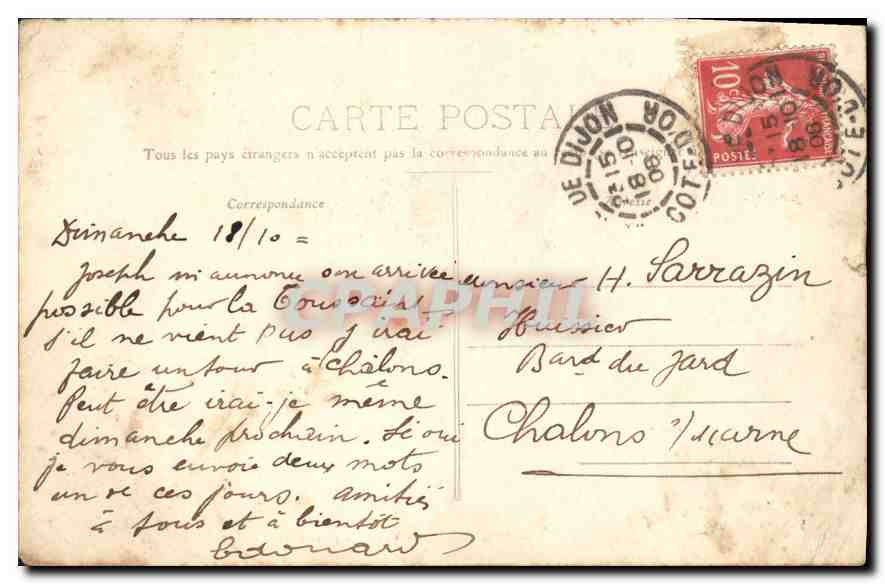 CARTE POSTALE
Tous les pays étrangers n'acceptent pas la correspondance au
Correspondance
Adresse
10c
POSTES
DIJON COTE-D'OR
15
18-10
08
DIJON COTE-D'OR
15
18-10
08
Dimanche 18/10 =
Joseph m'annonce son arrivée
possible pour la Toussaint
s'il ne vient pas j'irai
faire un tour à Châlons.
Peut être irai-je même
dimanche prochain. Si oui
je vous envoie deux mots
un de ces jours. Amitiés
à tous et à bientôt
Edouard
Monsieur H. Sarrazin
Huissier
Bard du Jard
Chalons s/Marne
CPAPHIL